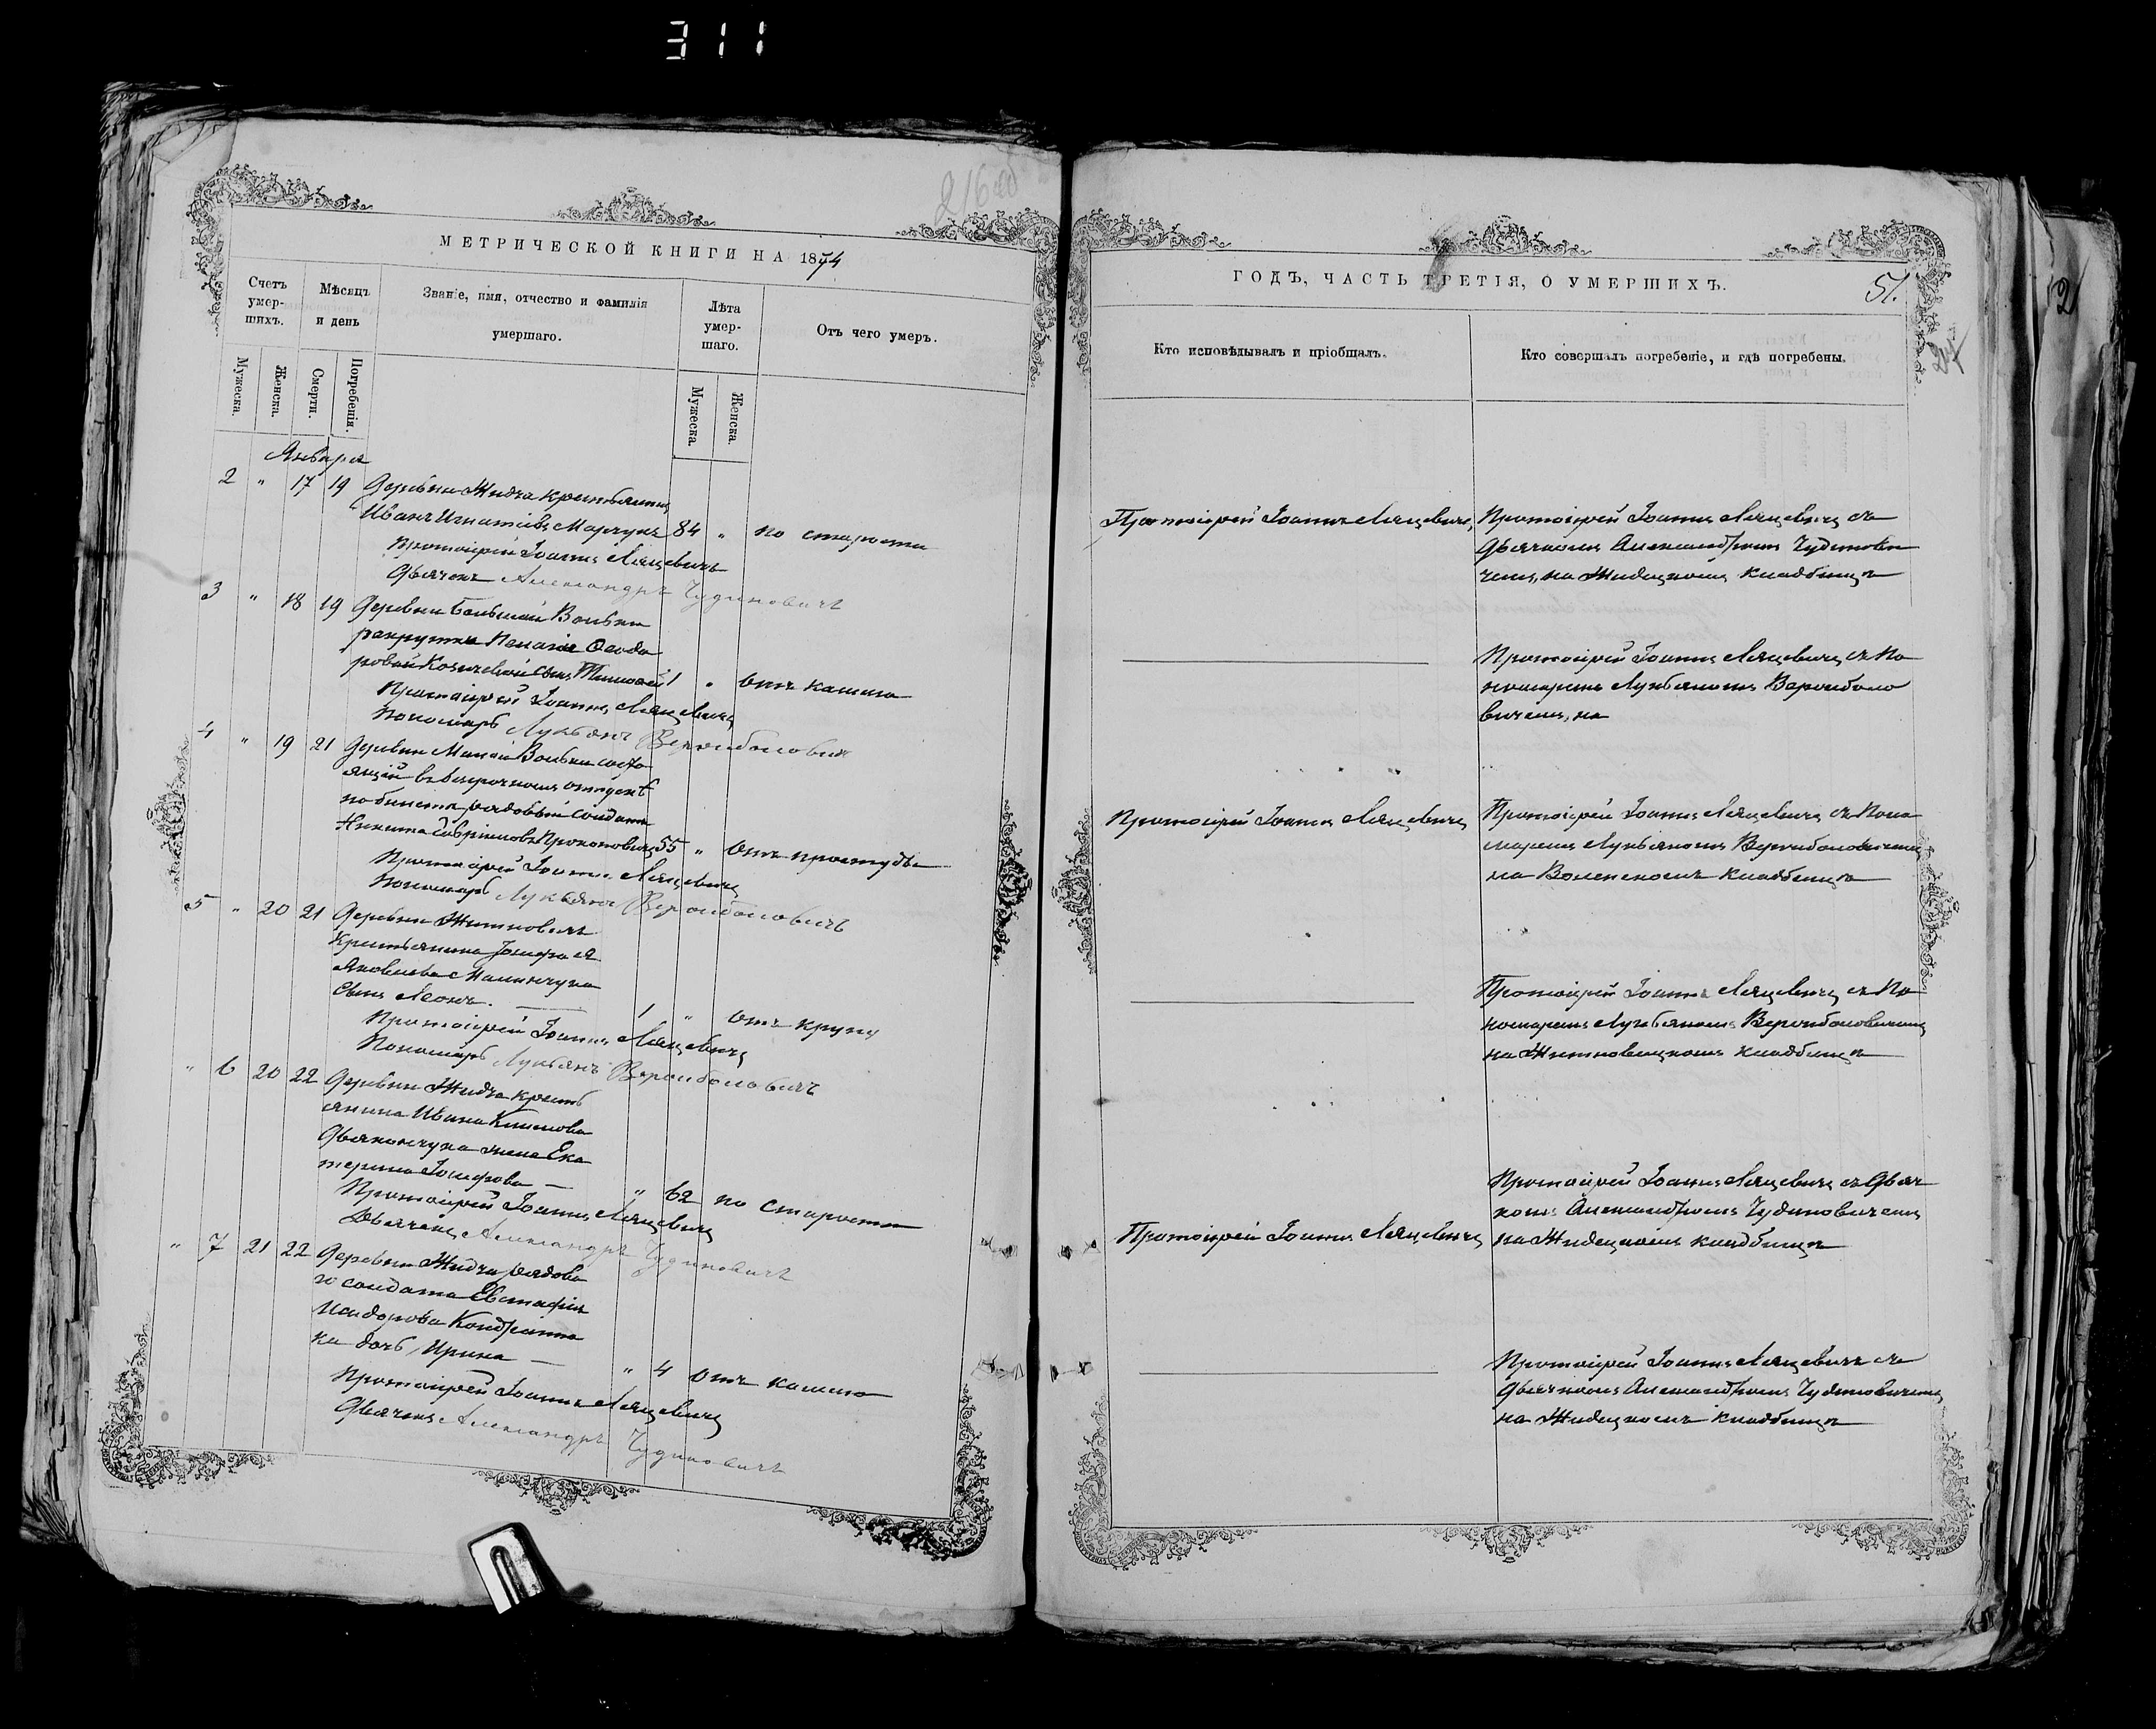 311
МЕТРИЧЕСКОЙ КНИГИ НА 1874
Счетъ умер-шихъ.
Мѣсяцъ и день
Званіе, имя, отчество и фамилія умершаго.
Лѣта умер-шаго.
Отъ чего умеръ.
Мужеска.
Женска.
Смерти.
Погребенія.
Мужеска.
Женска.
Января
2 " 17 19 Деревни Жидча крестьянинъ
Иванъ Игнатіевъ Марчукъ 84 " по старости
Протоіерей Іоаннъ Ляцевичъ
Дьячекъ Александръ Чудиновичъ
3 " 18 19 Деревни Большой Вольки
рекрутки Пелагіи Ѳеодо
ровой Козичевой сынъ Тимоѳей 1 " отъ кашля
Протоіерей Іоаннъ Ляцевичъ
Пономарь Лукьянъ Вероиболовичъ
4 " 19 21 Деревни Малой Вольки состо
ящій въ безсрочномъ отпускѣ
по билету рядовый солдатъ
Никита Гавріиловъ Прокоповичъ 55 " отъ простуды
Протоіерей Іоаннъ Ляцевичъ
Пономарь Лукьянъ Вероиболовичъ
5 " 20 21 Деревни Житновичъ
крестьянина Іосифа
Яковлева Малинчука
сынъ Леонъ. 1 " отъ крупу
Протоіерей Іоаннъ Ляцевичъ
Пономарь Лукьянъ Вероиболовичъ
" 6 20 22 Деревни Жидча кресть
янина Ивана Климова
Дьякончука жена Ека
терина Іосифова — " 62 по старости
Протоіерей Іоаннъ Ляцевичъ
Дьячекъ Александръ Чудиновичъ
" 7 21 22 Деревни Жидча рядова
го солдата Евстафія
Исидорова Кондратю
ка дочь, Ирина — " 4 отъ кашлю
Протоіерей Іоаннъ Ляцевичъ
Дьячекъ Александръ Чудиновичъ
ГОДЪ, ЧАСТЬ ТРЕТІЯ, О УМЕРШИХЪ.
51.
Кто исповѣдывалъ и пріобщалъ.
Кто совершалъ погребеніе, и гдѣ погребены.
Протоіерей Іоаннъ Ляцевичъ,
Протоіерей Іоаннъ Ляцевичъ съ
дьячкомъ Александромъ Чудинови
чемъ, на Жидецкомъ кладбищѣ
Протоіерей Іоаннъ Ляцевичъ съ по
номаремъ Лукьяномъ Вероиболо
вичемъ, на
Протоіерей Іоаннъ Ляцевичъ
Протоіерей Іоаннъ Ляцевичъ съ поно
маремъ Лукьяномъ Вероиболовичемъ
на Волепскомъ кладбищѣ
Протоіерей Іоаннъ Ляцевичъ съ по
номаремъ Лукьяномъ Вероиболовичемъ
на Житновецкомъ кладбищѣ
Протоіерей Іоаннъ Ляцевичъ
Протоіерей Іоаннъ Ляцевичъ съ дьяч
комъ Александромъ Чудиновичемъ
на Жидецкомъ кладбищѣ
Протоіерей Іоаннъ Ляцевичъ съ
дьячкомъ Александромъ Чудиновичемъ
на Жидецкомъ кладбищѣ
2